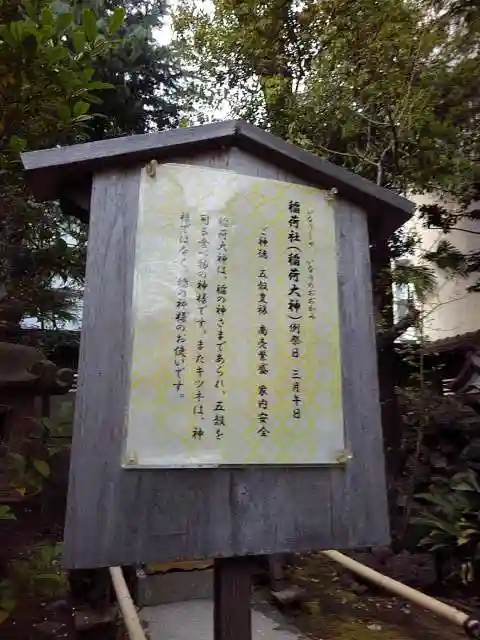 いなりしゃ いなりのおおかみ
稲荷社(稲荷大神)例祭日 三月午日
ご神徳 五穀豊穣 商売繁盛 家内安全
稲荷大神は、稲の神さまであられ、五穀を
司る食べ物の神様です。またキツネは、神
様ではなく、稲の神様のお使いです。